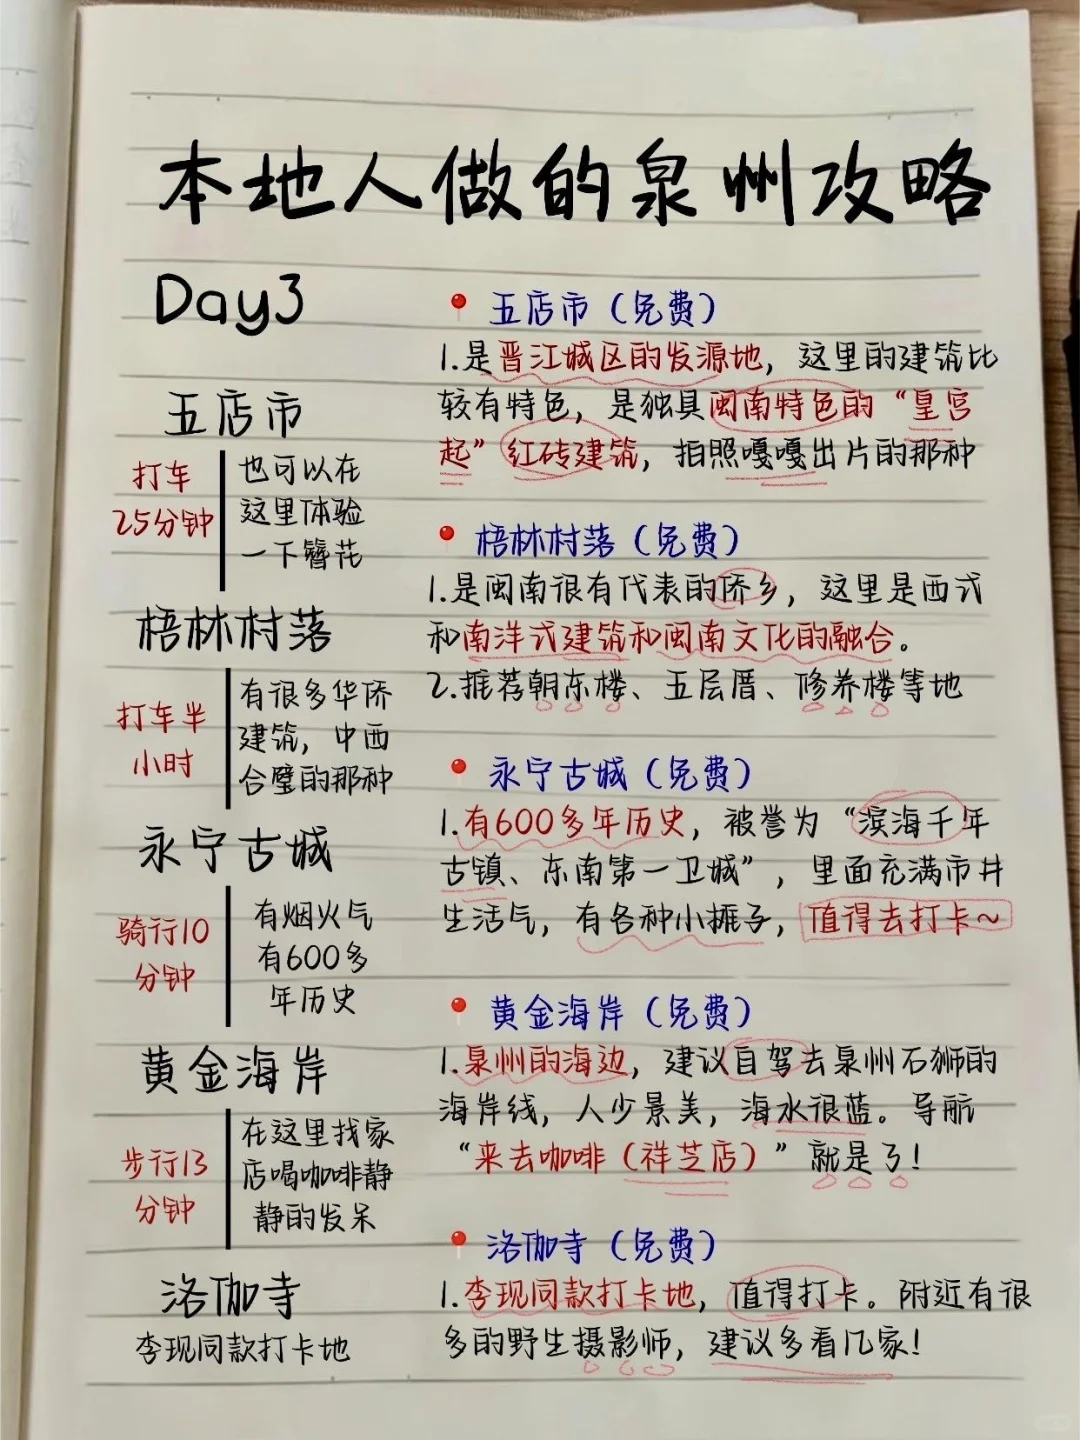 本地人做的泉州攻略
Day3
五店市
打车
25分钟
也可以在
这里体验
一下簪花
梧林村落
打车半
小时
有很多华侨
建筑，中西
合璧的那种
永宁古城
骑行10
分钟
有烟火气
有600多
年历史
黄金海岸
步行13
分钟
在这里找家
店喝咖啡静
静的发呆
洛伽寺
李现同款打卡地
📍五店市（免费）
1.是晋江城区的发源地，这里的建筑比
较有特色，是独具闽南特色的“皇宫
起”红砖建筑，拍照嘎嘎出片的那种
📍梧林村落（免费）
1.是闽南很有代表的侨乡，这里是西式
和南洋式建筑和闽南文化的融合。
2.推荐朝东楼、五层厝、修养楼等地
📍永宁古城（免费）
1.有600多年历史，被誉为“滨海千年
古镇、东南第一卫城”，里面充满市井
生活气，有各种小摊子，值得去打卡~
📍黄金海岸（免费）
1.泉州的海边，建议自驾去泉州石狮的
海岸线，人少景美，海水很蓝。导航
“来去咖啡（祥芝店）”就是了！
📍洛伽寺（免费）
1.李现同款打卡地，值得打卡。附近有很
多的野生摄影师，建议多看几家！